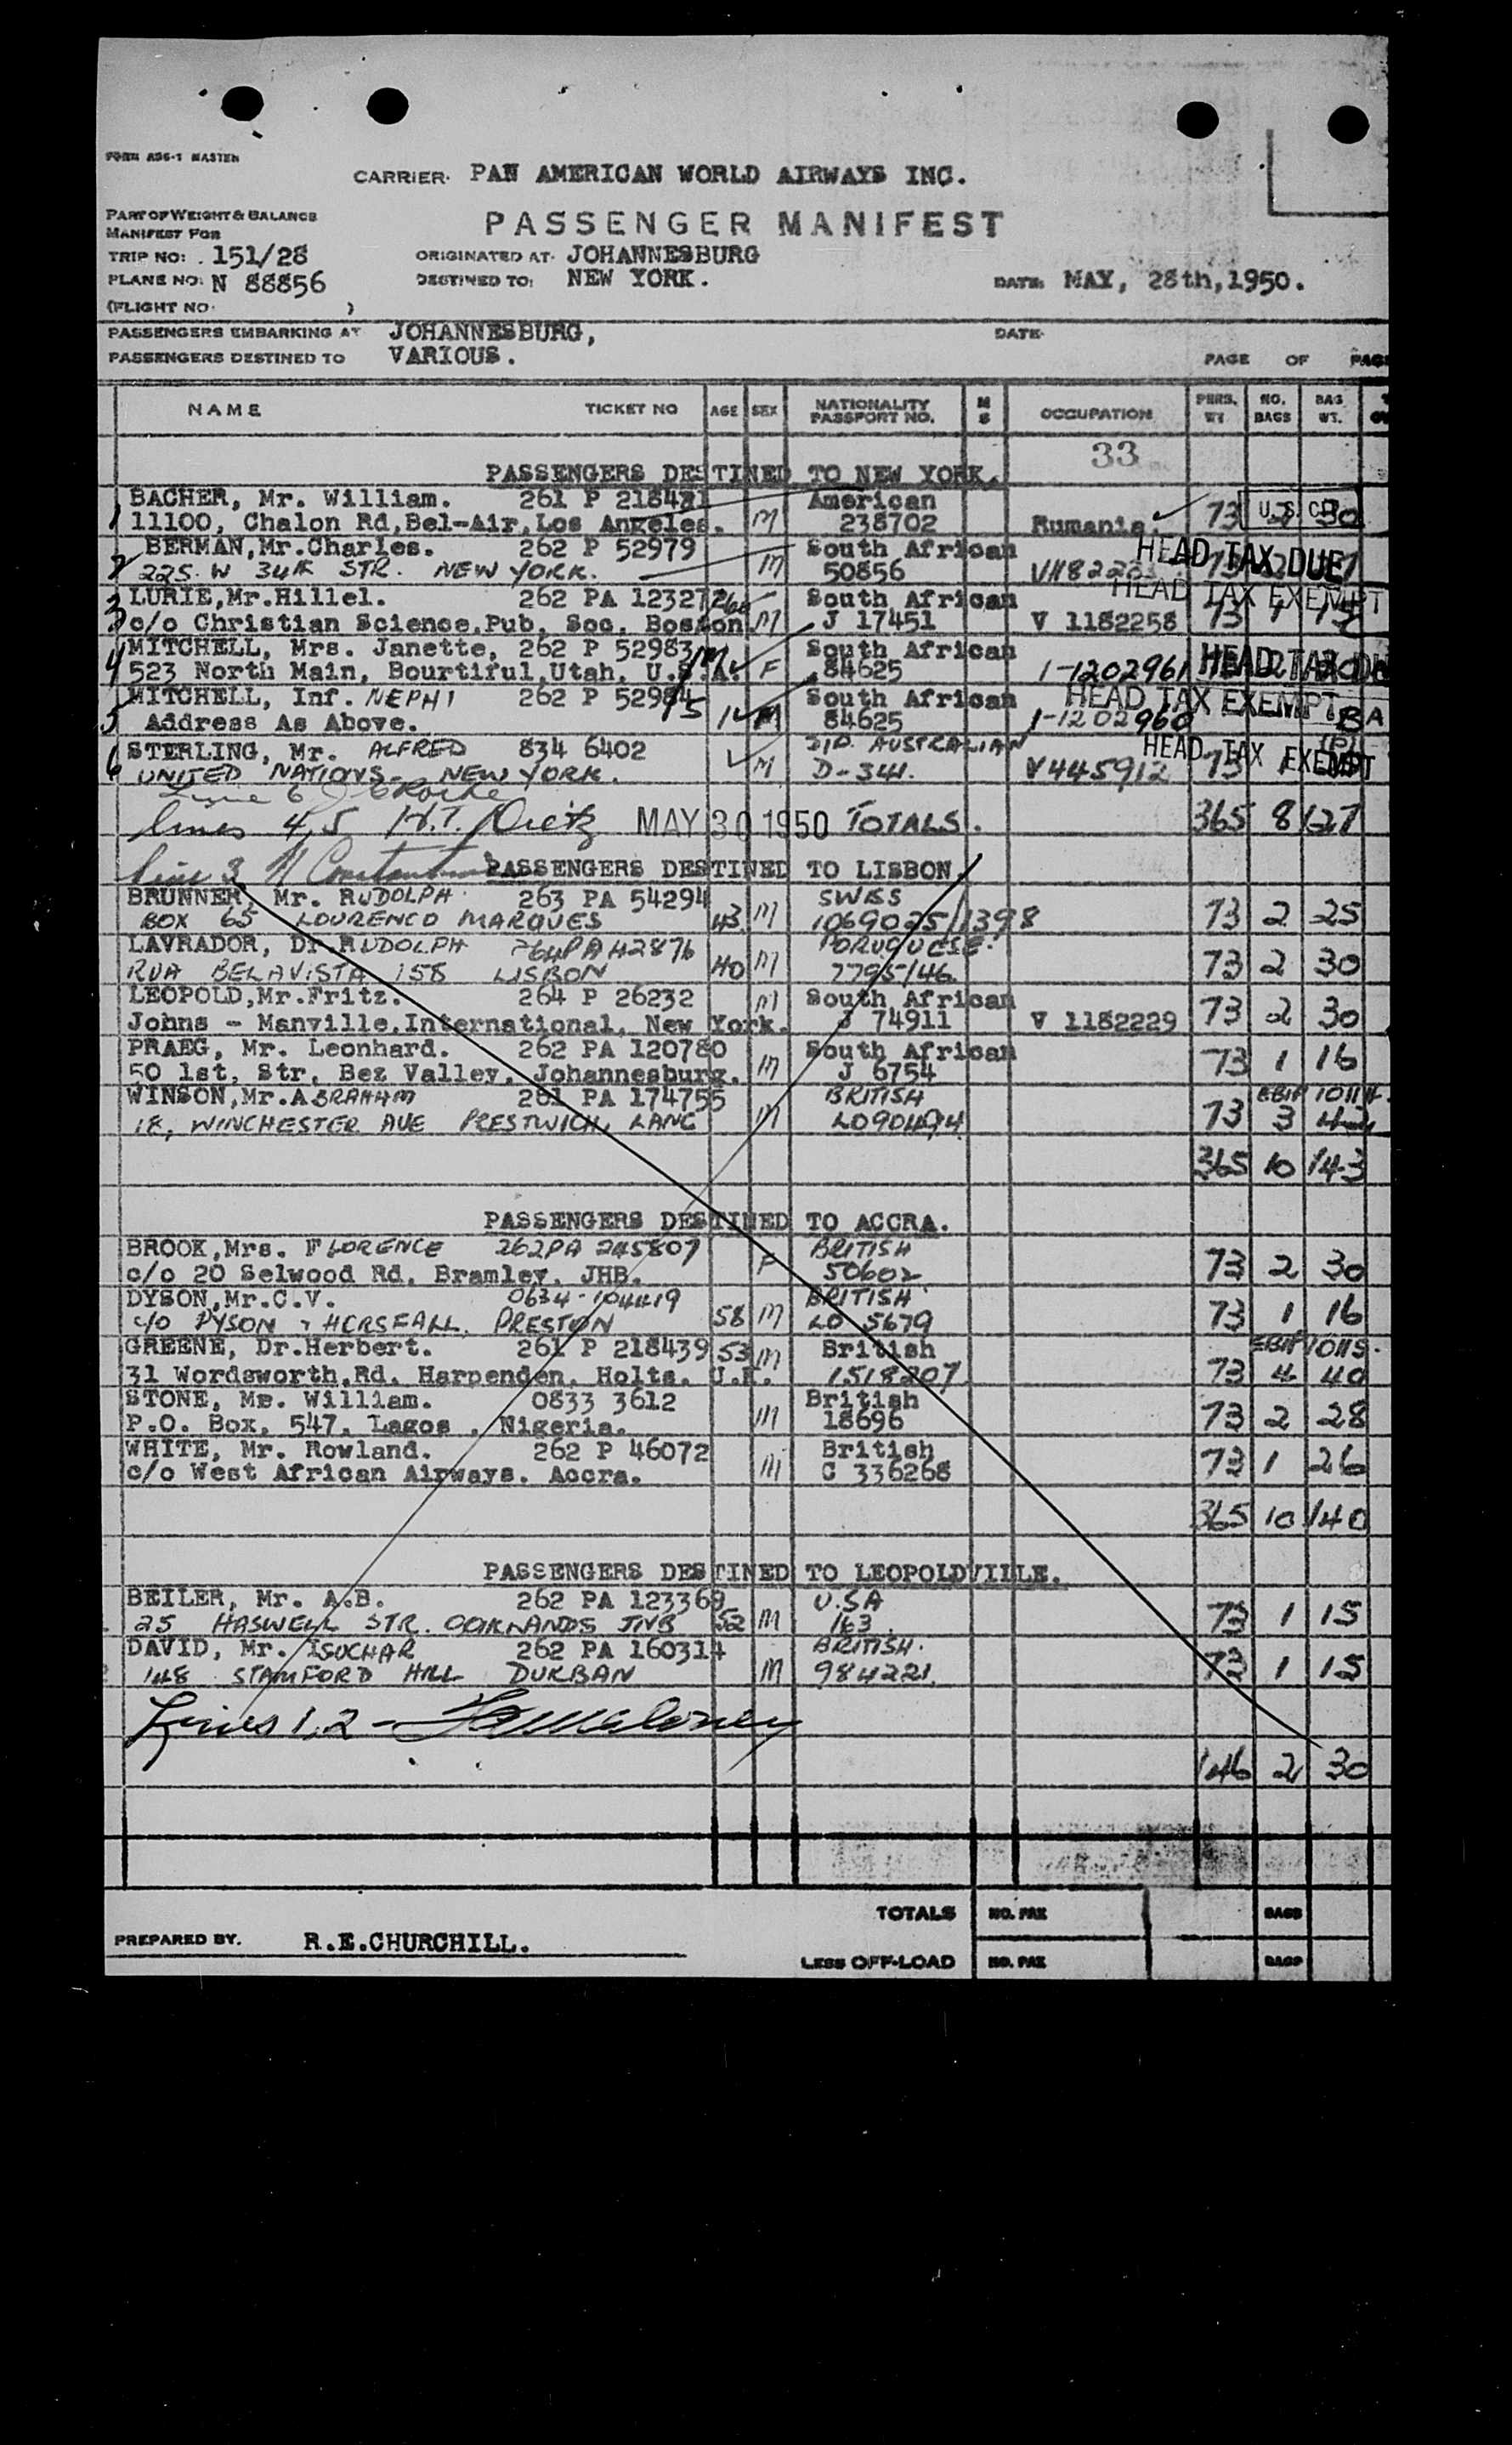 FORM ASG-1 MASTER
CARRIER. PAN AMERICAN WORLD AIRWAYS INC.
PART OF WEIGHT & BALANCE
MANIFEST FOR
PASSENGER MANIFEST
TRIP NO: . 151/28 ORIGINATED AT. JOHANNESBURG
PLANE NO: N 88856 DESTINED TO: NEW YORK. DATE. MAY, 28th,1950.
(FLIGHT NO. )
PASSENGERS EMBARKING AT JOHANNESBURG, DATE.
PASSENGERS DESTINED TO VARIOUS. PAGE OF PAGE
NAME TICKET NO AGE SEX NATIONALITY PASSPORT NO. M S OCCUPATION PERS. WT NO. BAGS BAG WT.
33
PASSENGERS DESTINED TO NEW YORK.
BACHER, Mr. William. 261 P American
1 11100, Chalon Rd,Bel-Air,Los Angeles. M 238702 Rumania. 73 30
U.S. CIT
BERMAN,Mr.Charles. 262 P 52979 South African
2 225. W 34th STR. NEW YORK. M 50856 HEAD TAX DUE
HEAD TAX EXEMPT
LURIE,Mr.Hillel. 262 PA South African
3 c/o Christian Science.Pub. Soc. Boston. M J 17451 V 1182258 73 1 15
MITCHELL, Mrs. Janette, 262 P 52983 South African
4 523 North Main, Bourtiful,Utah. U.S.A. F 84625 1-1202961 HEAD TAX
MITCHELL, Inf. NEPHI 262 P 52984 South African HEAD TAX EXEMPT
5 Address As Above. M 84625 1-1202960 BA
STERLING, Mr. ALFRED 834 6402 DIP. AUSTRALIAN HEAD TAX EXEMPT
6 UNITED NATIONS NEW YORK. M D-341. V445912 73 1
Line 6
lines 4,5 H.T. Dietz MAY 30 1950 TOTALS. 365 8 127
PASSENGERS DESTINED TO LISBON.
BRUNNER, Mr. RUDOLPH 263 PA 54294 SWISS
BOX 65 LOURENCO MARQUES 43 M 1069025/1398 73 2 25
LAVRADOR, Dr.RUDOLPH 264PA42876 PORUGUESE.
RUA BELAVISTA 158 LISBON 40 M 7795/46. 73 2 30
LEOPOLD,Mr.Fritz. 264 P 26232 M South African
Johns - Manville.International. New York. J 74911 V 1182229 73 2 30
PRAEG, Mr. Leonhard. 262 PA 120780 South African
50 1st. Str. Bez Valley. Johannesburg. M J 6754 73 1 16
WINSON,Mr.ABRAHAM 261 PA 174755 BRITISH
18, WINCHESTER AVE PRESTWICH, LANC M 73 3
365 10 143
PASSENGERS DESTINED TO ACCRA.
BROOK,Mrs. FLORENCE 262PA 245807 BRITISH
c/o 20 Selwood Rd. Bramley. JHB. F 50602 73 2 30
DYSON,Mr.C.V. 0634-104419 BRITISH
c/o DYSON & HORSFALL. PRESTON 58 M LO 5679 73 1 16
GREENE, Dr.Herbert. 261 P 218439 53 M British
31 Wordsworth.Rd. Harpenden. Holts. U.K. 1518207 73 4 40
STONE, Mr. William. 0833 3612 British
P.O. Box. 547. Lagos . Nigeria. M 18696 73 2 28
WHITE, Mr. Rowland. 262 P 46072 British
c/o West African Airways. Accra. M C 336268 73 1 26
365 10 140
PASSENGERS DESTINED TO LEOPOLDVILLE.
BEILER, Mr. A.B. 262 PA 123369 U.SA
25 HASWELL STR. OAKLANDS JNB 52 M 163. 73 1 15
DAVID, Mr. ISUCHAR 262 PA 160314 BRITISH.
148 STAMFORD HILL DURBAN M 984221. 73 1 15
Lines 1,2 -
146 2 30
TOTALS NO. PAX BAGS
PREPARED BY. R.E.CHURCHILL.
LESS OFF-LOAD NO. PAX BAGS